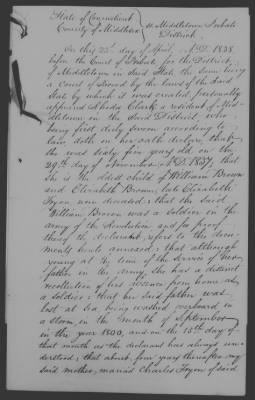 State of Connecticut
County of Middlesex } ss Middletown Probate
District.
On this 23d day of April A.D. 1838.
before the Court of Probate for the District
of Middletown in Said State the Same being
a Court of Record by the laws of the Said
State by which it was created, personally
appeared Rhoda Clark a resident of Mid-
dletown in the Said District, who
being first duly sworn according to
law, doth on her oath declare that
she was sixty five years old on the
29th day of November A.D. 1837, that
she is the oldest child of William Brown
and Elizabeth Brown, late Elizabeth
Tryon, now deceased; that the said
William Brown was a Soldier in the
army of the Revolution and for proof
thereof the declarant refers to the docu-
ments hereto annexed; that although
young at the time of the Service of her
father in the army, she has a distinct
recollection of his absence from home as
a Soldier; that her Said father was
lost at Sea, being washed overboard in
a Storm, in the month of September
in the year 1800, and on the 15th day of
that month as the declarant has always un-
derstood; that about four years thereafter my
said mother, married Charles Tryon of said